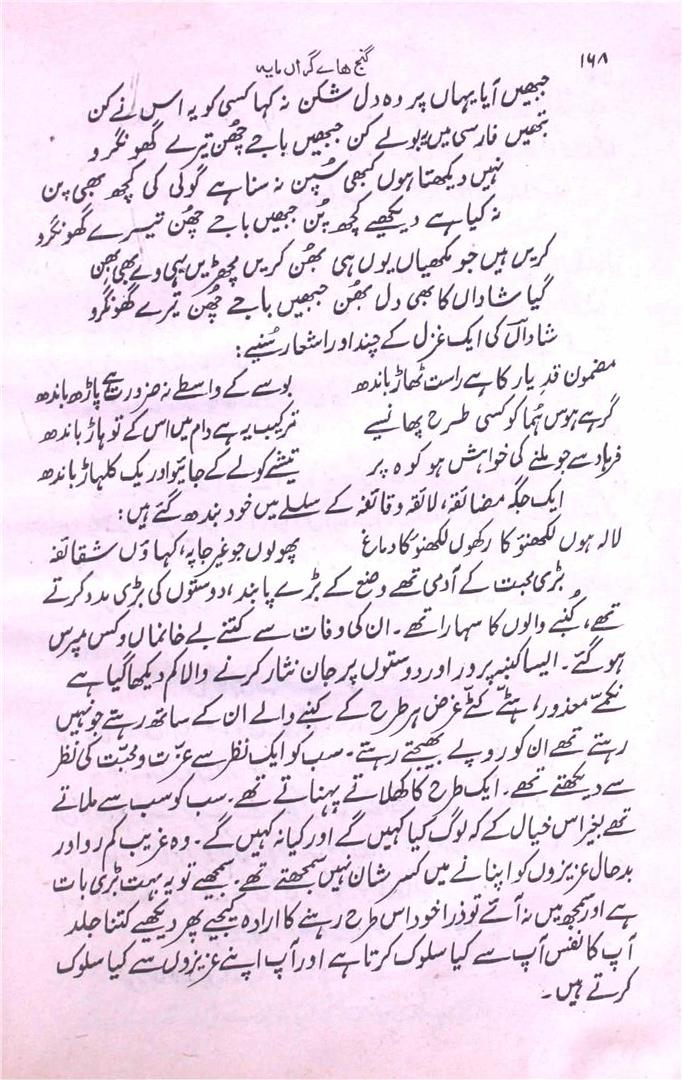 ۱۶۸ گنج ہاے گراں مایہ
جبھیں آیا یہاں پر وہ دل شکن نہ کہا کسی کو یہ اس نے کن
تھیں فارسی میں یہ بولے کن جبھیں باجے چھن تیرے گھونگرو
نہیں دیکھتا ہوں کبھی سپن نہ سنا ہے گو کی کی کچھ بھی پن
نہ کیا ہے دیکھیے کچھ پن جبھیں باجے چھن تیرے گھونگرو
کریں ہیں جو مکھیاں یوں ہی بھن کریں مچھڑیں یہی وے بھی بھن
گیا شاداں کا بھی دل بھن جبھیں باجے چھن تیرے گھونگرو
شاداں کی ایک غزل کے چند اور اشعار سنیے:
مضمون قدِ یار کا ہے راست ٹھاڑ باندھ بوسے کے واسطے نہ ضرورت ہے پاڑھ باندھ
گر ہے ہوس ہُما کو کسی طرح پھانسیے ترکیب یہ ہے دام میں اس کے تو ہاڑ باندھ
فرہاد سے جو ملنے کی خواہش ہو کوہ پر تیشے کو لے کے جائیو اور یک کلہاڑ باندھ
ایک جگہ مضائقہ، لائقہ و قائقہ کے سلسلے میں خود بندھ گئے ہیں:
لالہ ہوں لکھنؤ کا رکھوں لکھنؤ کا دماغ پھولوں جو غیر جا پہ، کہاؤں شقائقہ
بڑی محبت کے آدمی تھے وضع کے بڑے پابند، دوستوں کی بڑی مدد کرتے
تھے، کُنبے والوں کا سہارا تھے۔ ان کی وفات سے کتنے بے خانماں و کس مپرس
ہو گئے۔ ایسا کنبہ پرور اور دوستوں پر جان نثار کرنے والا کم دیکھا گیا ہے
نکمّے معذور، ہٹّے کٹّے غرض ہر طرح کے کنبے والے ان کے ساتھ رہتے جو نہیں
رہتے تھے ان کو روپے بھیجتے رہتے۔ سب کو ایک نظر سے عزّت و محبّت کی نظر
سے دیکھتے تھے۔ ایک طرح کا کھلاتے پہناتے تھے۔ سب کو سب سے ملاتے
تھے بغیر اس خیال کے کہ لوگ کیا کہیں گے اور کیا نہ کہیں گے۔ وہ غریب کم رو اور
بدحال عزیزوں کو اپنانے میں کسرِ شان نہیں سمجھتے تھے۔ سمجھیے تو یہ بہت بڑی بات
ہے اور سمجھ میں نہ آئے تو ذرا خود اس طرح رہنے کا ارادہ کیجیے پھر دیکھیے کتنا جلد
آپ کا نفس آپ سے کیا سلوک کرتا ہے اور آپ اپنے عزیزوں سے کیا سلوک
کرتے ہیں۔